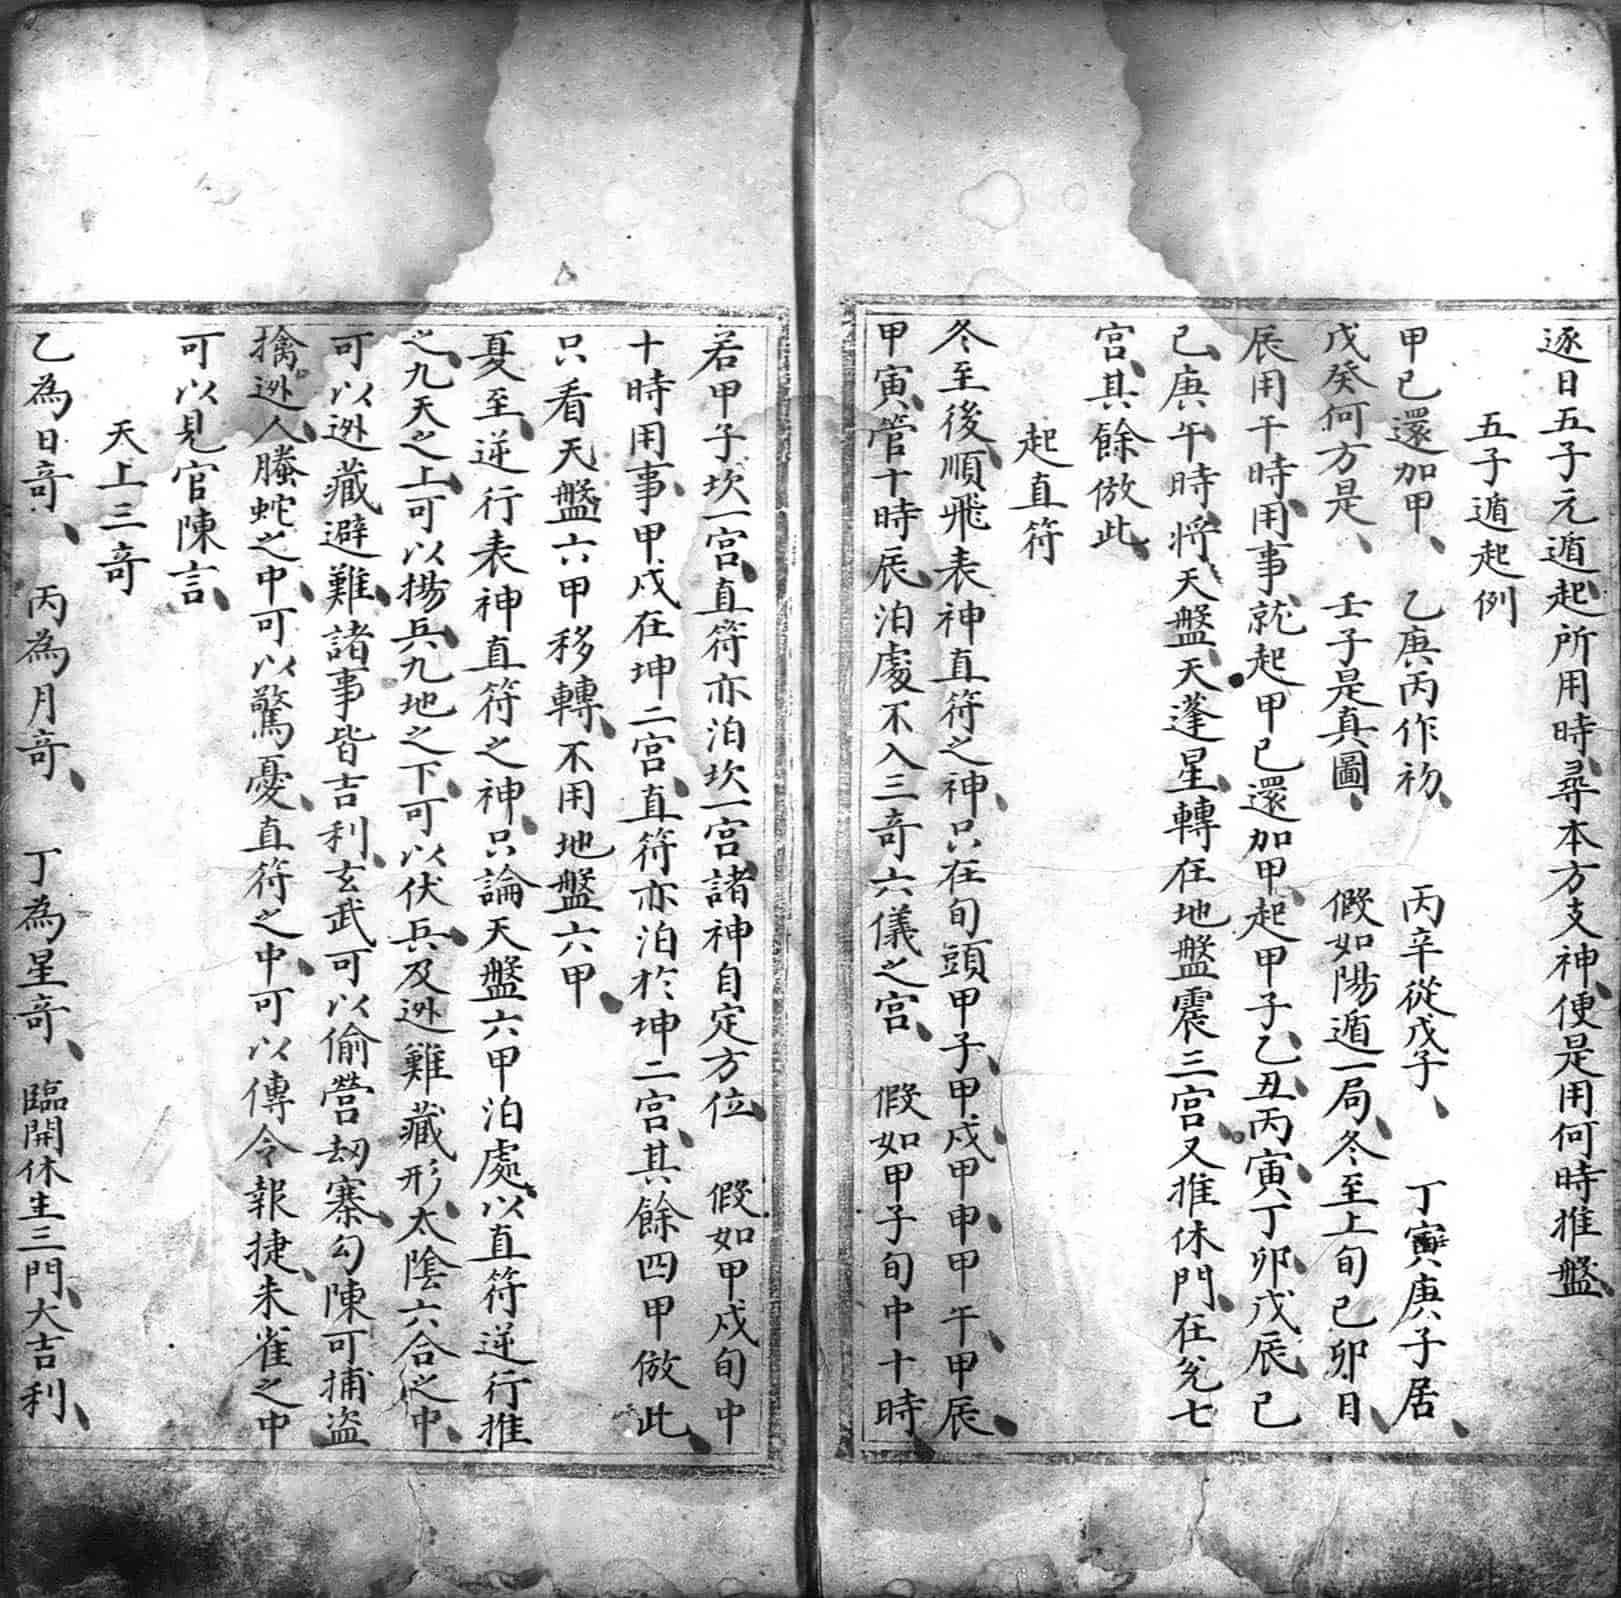 逐日五子元遁起所用時尋本方支神便是用何時推盤
五子遁起例
甲己還加甲、乙庚丙作初、丙辛從戊子、丁寅庚子居、
戊癸何方是、壬子是真圖、假如陽遁一局、冬至上旬己卯日、
辰用午時、用事、就起甲己還加甲、起甲子、乙丑、丙寅、丁卯、戊辰、己
巳、庚午、時將天盤、天蓬星、轉在地盤震三宮、又推休門、在兌七
宮、其餘倣此、
起直符
冬至後、順飛表神直符之神、只在旬頭甲子、甲戌、甲申、甲午、甲辰、
甲寅、管十時辰、泊處不入三奇六儀之宮、假如甲子旬中十時、
若甲子坎一宮、直符亦泊坎一宮、諸神自定方位、假如甲戌旬中
十時用事、甲戌在坤二宮、直符亦泊於坤二宮、其餘四甲倣此、
只看天盤六甲移轉、不用地盤六甲、
夏至、逆行表神直符之神、只論天盤六甲泊處、以直符逆行推
之、九天之上、可以揚兵、九地之下、可以伏兵、及迯難藏形、太陰六合之中、
可以迯藏避難、諸事皆吉利、玄武可以偷營刼寨、勾陳可捕盜
擒迯人、螣蛇之中、可以驚憂、直符之中、可以傳令報捷、朱雀之中
可以見官陳言、
天上三奇
乙為日奇、丙為月奇、丁為星奇、臨開休生三門、大吉利、